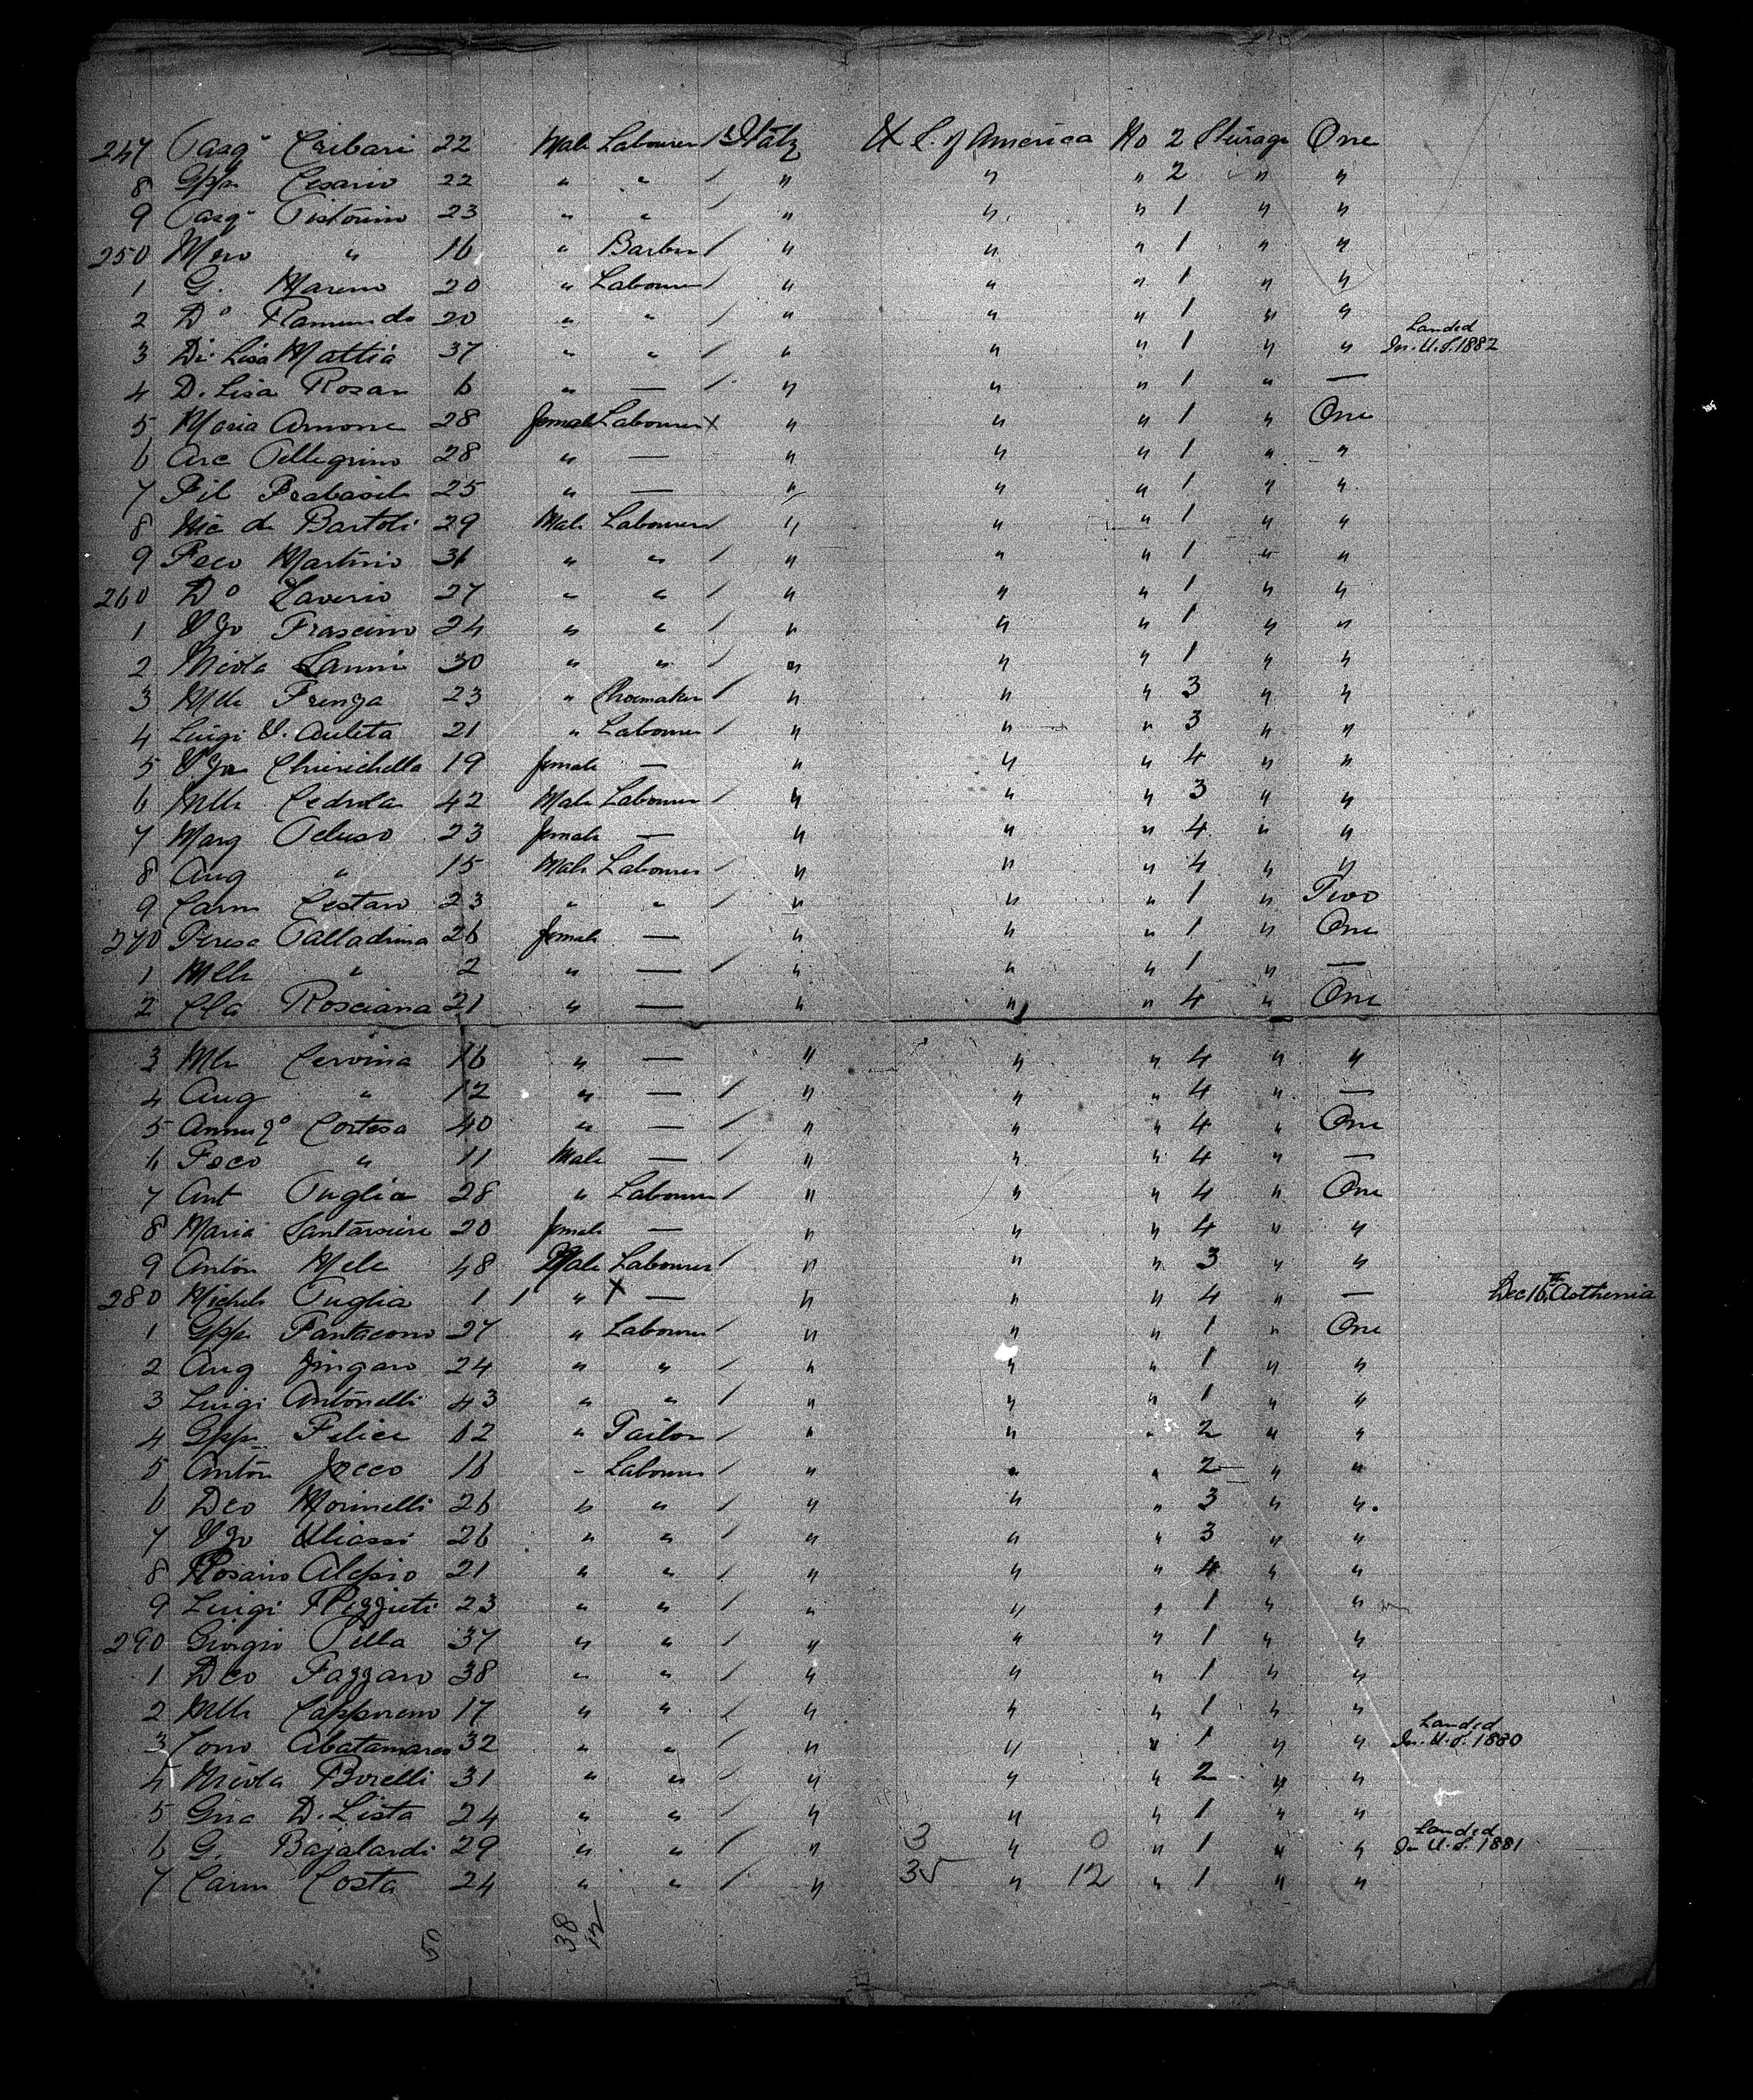 247 Pasq Cribari 22 Male Labourer / Italy U S. of America No 2 Sturage One
8 Gppe Cesario 22 " " / " " " 2 " "
9 Pasq Pistorino 23 " " / " " " 1 " "
250 " 16 " Barber / " " " 1 " "
1 G. Mareno 20 " Labourer / " " " 1 " "
2 Do Ramundo 20 " " / " " " 1 " "
3 Di Lisa Mattia 37 " " / " " " 1 " " Landed In. U.S. 1882
4 D. Lisa Rosar 6 " — / " " " 1 " —
5 Maria Arnone 28 female Labourer x " " " 1 " One
6 Arc Pellegrino 28 " — " " " 1 " "
7 Fil 25 " — " " " 1 " "
8 Nic de Bartoli 29 Male Labourer / " " " 1 " "
9 Fsco Martino 31 " " / " " " 1 " "
260 Do Saverio 27 " " / " " " 1 " "
1 Vzo Frascino 24 " " / " " " 1 " "
2 Nicola Lanni 30 " " / " " " 1 " "
3 Mlle Frenza 23 " Shoemaker / " " " 3 " "
4 Luigi V. Auleta 21 " Labourer / " " " 3 " "
5 Vza Chirichella 19 female — " " " 4 " "
6 Mlle Cedrola 42 Male Labourer / " " " 3 " "
7 Marg Peluso 23 female — " " " 4 " "
8 Aug " 15 Male Labourer / " " " 4 " "
9 Carm Cestaro 23 " " / " " " 1 " Two
270 Teresa Palladrina 26 female — " " " 1 " One
1 Mlle " 2 " — / " " " 1 " —
2 Cla Rosciana 21 " — " " " 4 " One
3 Mle Cervina 16 " — " " " 4 " "
4 Aug " 12 " — / " " " 4 " —
5 Cortesa 40 " — / " " " 4 " One
6 Fsco " 11 Male — / " " " 4 " —
7 Ant Puglia 28 " Labourer / " " " 4 " One
8 Maria Santarsiere 20 female — " " " 4 " "
9 Anton Mele 48 Male Labourer / " " " 3 " "
280 Michele Puglia 1 / " x — " " " 4 " — Dec 16th Asthenia
1 Gppe Pantacono 27 " Labourer / " " " 1 " One
2 Aug Zingaro 24 " " / " " " 1 " "
3 Luigi Antonelli 43 " " / " " " 1 " "
4 Gppe Felice 62 " Tailor / " " " 2 " "
5 Anton 16 " Labourer / " " " 2 " "
6 Dco Morinelli 26 " " / " " " 3 " "
7 Vzo Uliassi 26 " " / " " " 3 " "
8 Rosario Alessio 21 " " / " " " 4 " "
9 Luigi Rizziuti 23 " " / " " " 1 " "
290 Giorgio Pella 37 " " / " " " 1 " "
1 Dco Fazzaro 38 " " / " " " 1 " "
2 Mlle 17 " " / " " " 1 " "
3 Abatamarco 32 " " / " " " 1 " " Landed In. U.S. 1880
4 Nicola Borelli 31 " " " " " 2 " "
5 D. Lista 24 " " / " " " 1 " "
6 G. Bajalardi 29 " " / " 3 " 0 " 1 " " Landed In U.S. 1881
7 Carm Costa 24 " " / " 35 " 12 " 1 " "
50 38 12